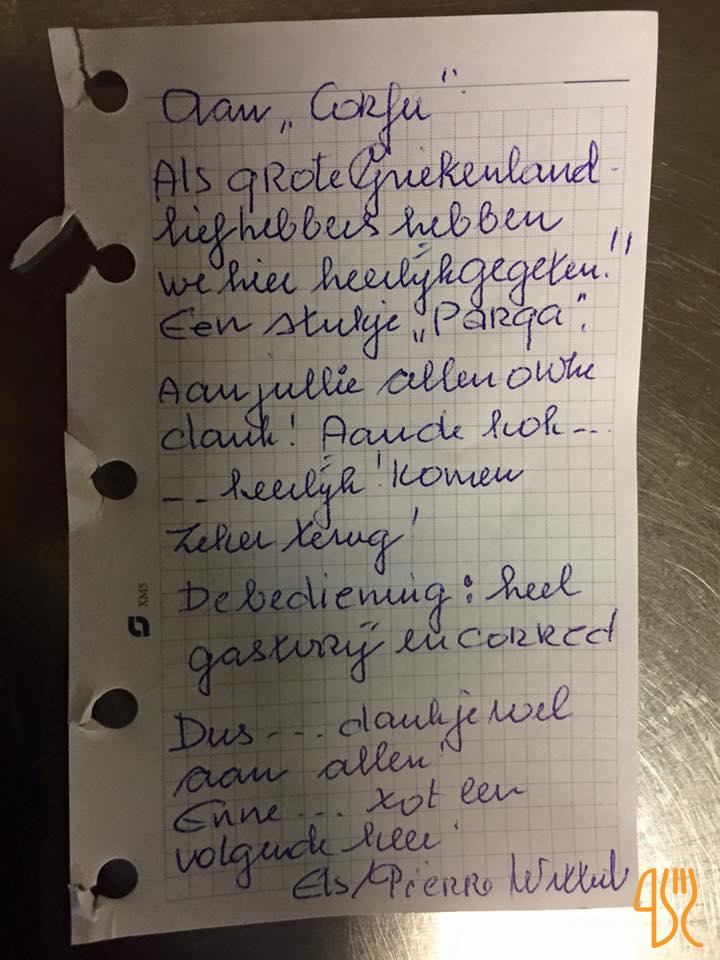 Aan „Corfu”.
Als grote Griekenland-
liefhebbers hebben
we hier heerlijk gegeten."
Een stukje „Parga”.
Aan jullie allen onze
dank! Aan de kok --
-- heerlijk! Komen
zeker terug!
De bediening: heel
gastvrij en correct
XMS
Dus --- dankjewel
aan allen
Enne --- tot een
volgende keer!
Els/Pierro